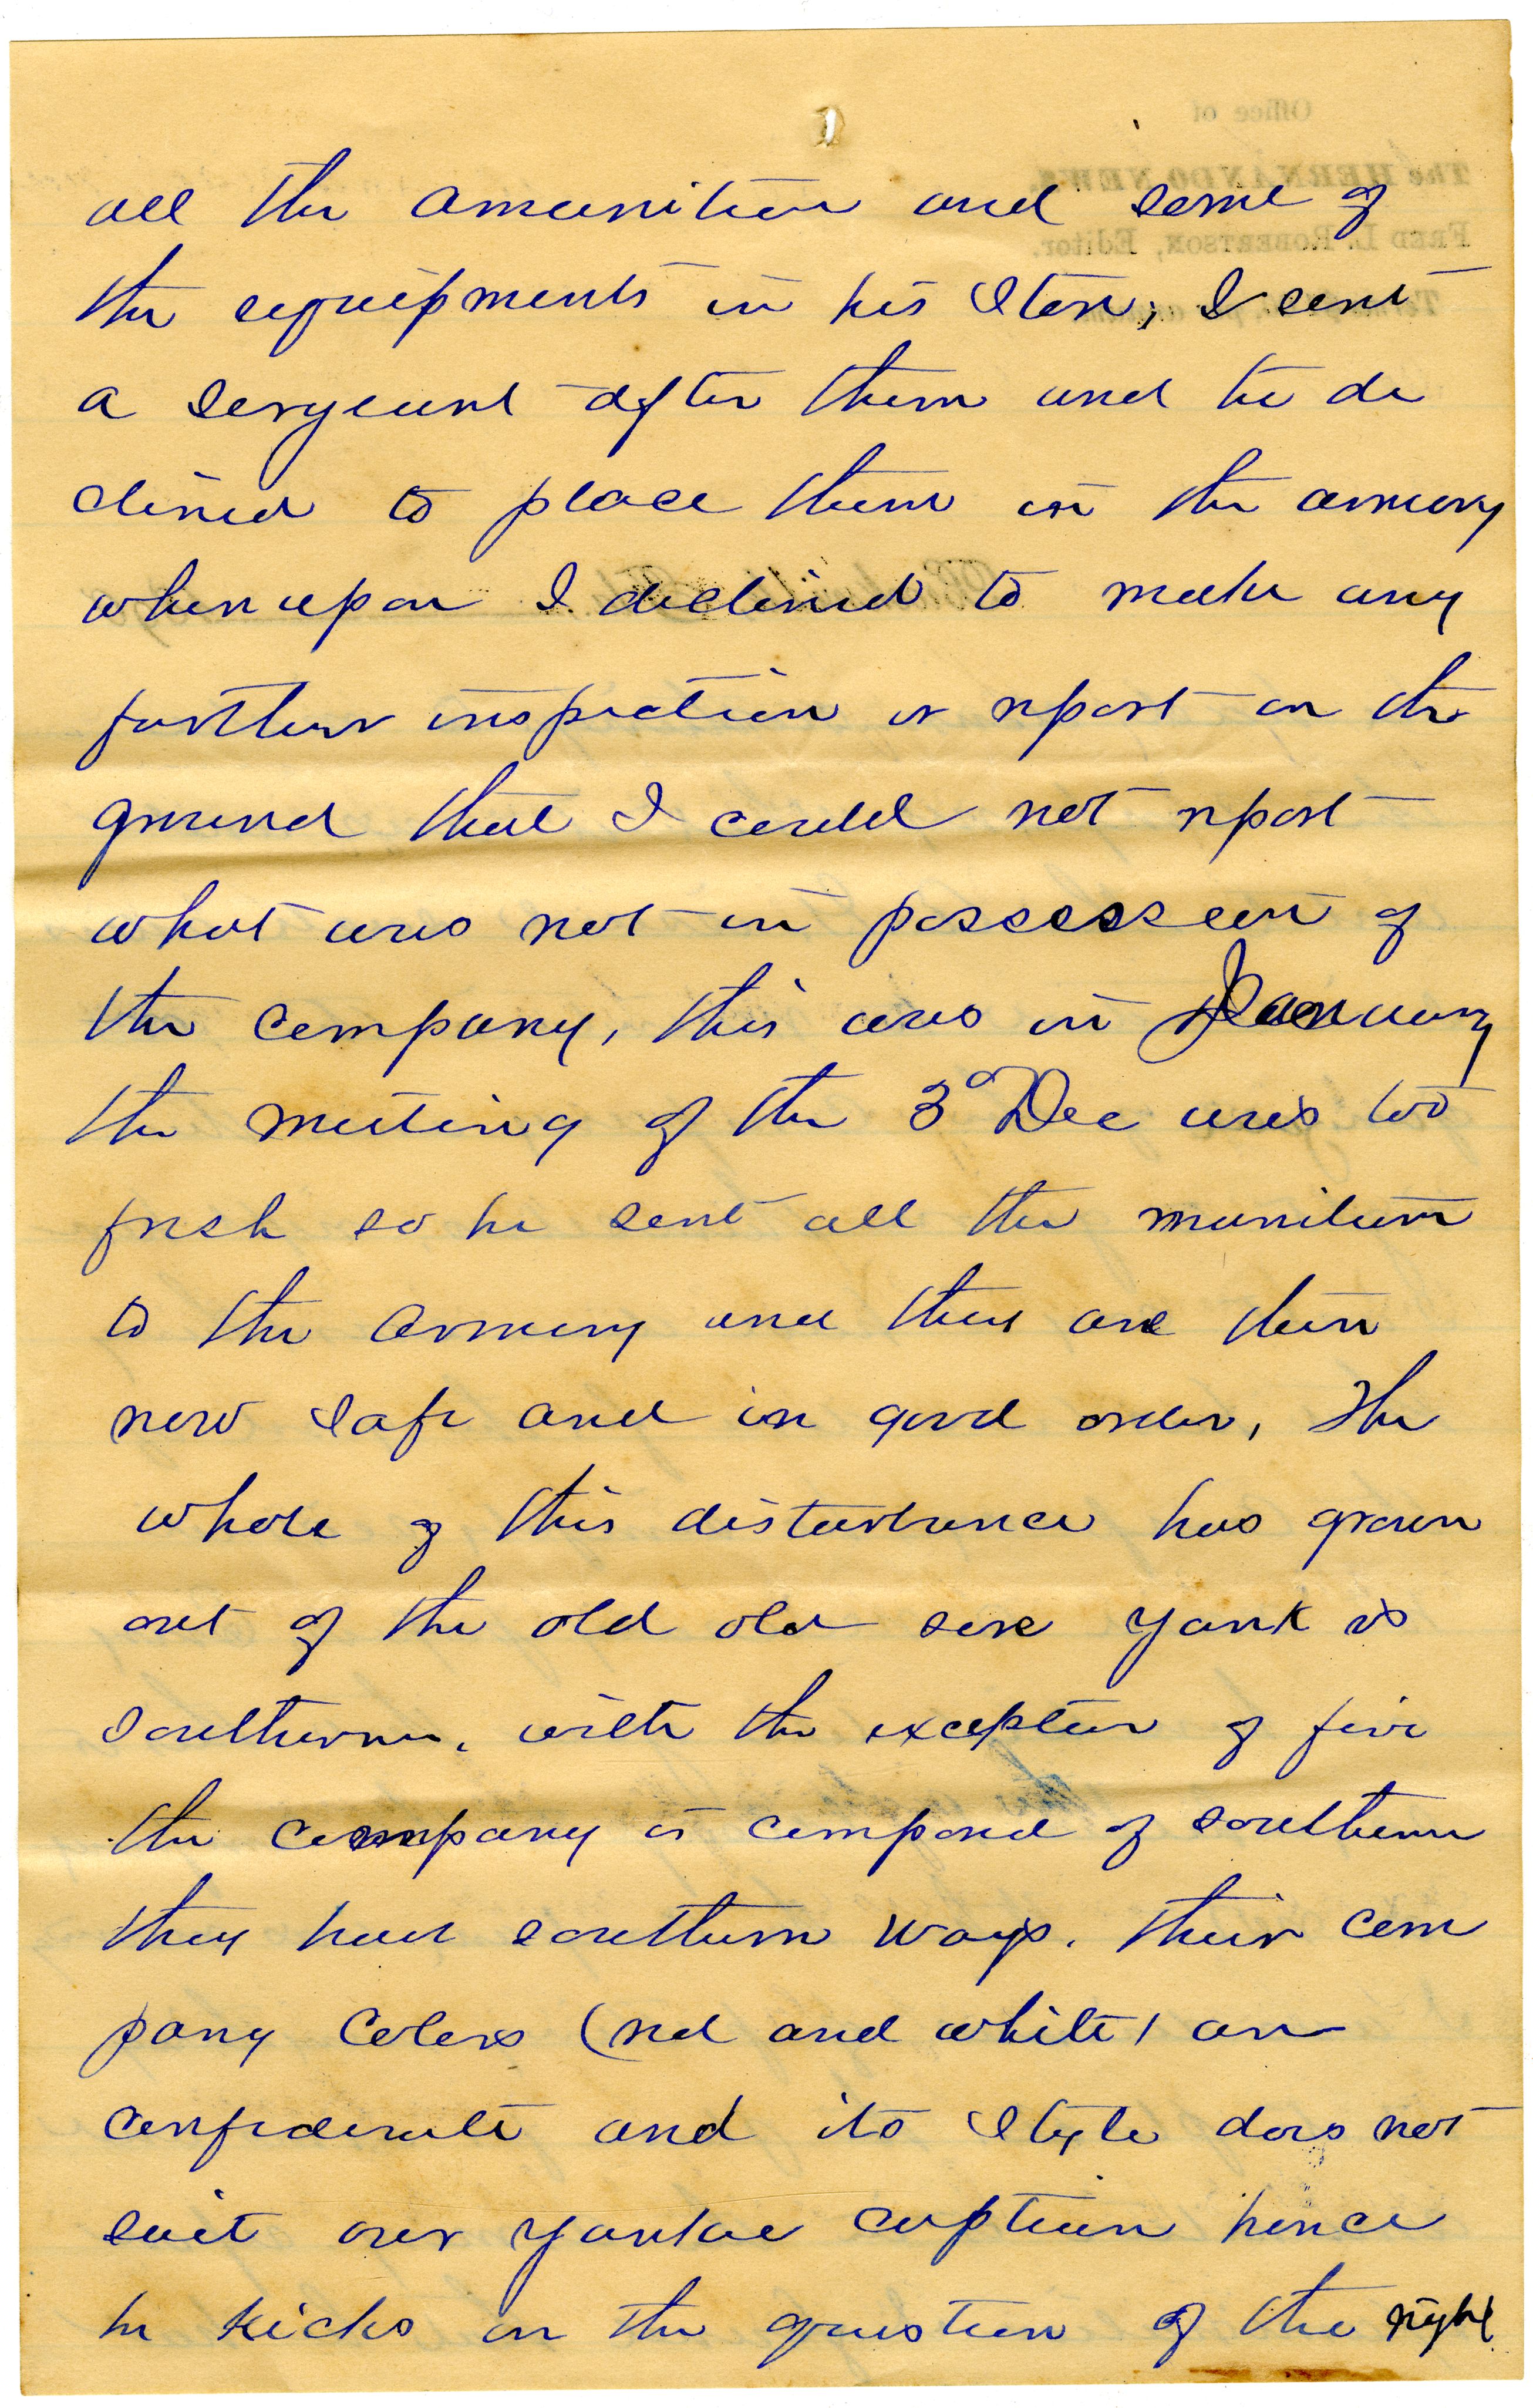 all the amunition and some of
the equipments in his store; I sent
a sergeant after them and he de
clined to place them in the armory
whereupon I declined to make any
further inspection or report on the
ground that I could not report
what was not in possession of
the company, this was in January
the meeting of the 3d Dec was too
fresh so he sent all the munitions
to the armory and they are there
now safe and in good order, The
whole of this disturbance has grown
out of the old old sore yank vs
southern. with the exception of five
the company is composed of southern
they have southern ways. their com
pany colors (red and white) are
confederate and its style does not
suit our yankee captain hence
he kicks on the question of the right
Office of
The HERNANDO NEWS,
FRED L. ROBERTSON, Editor.